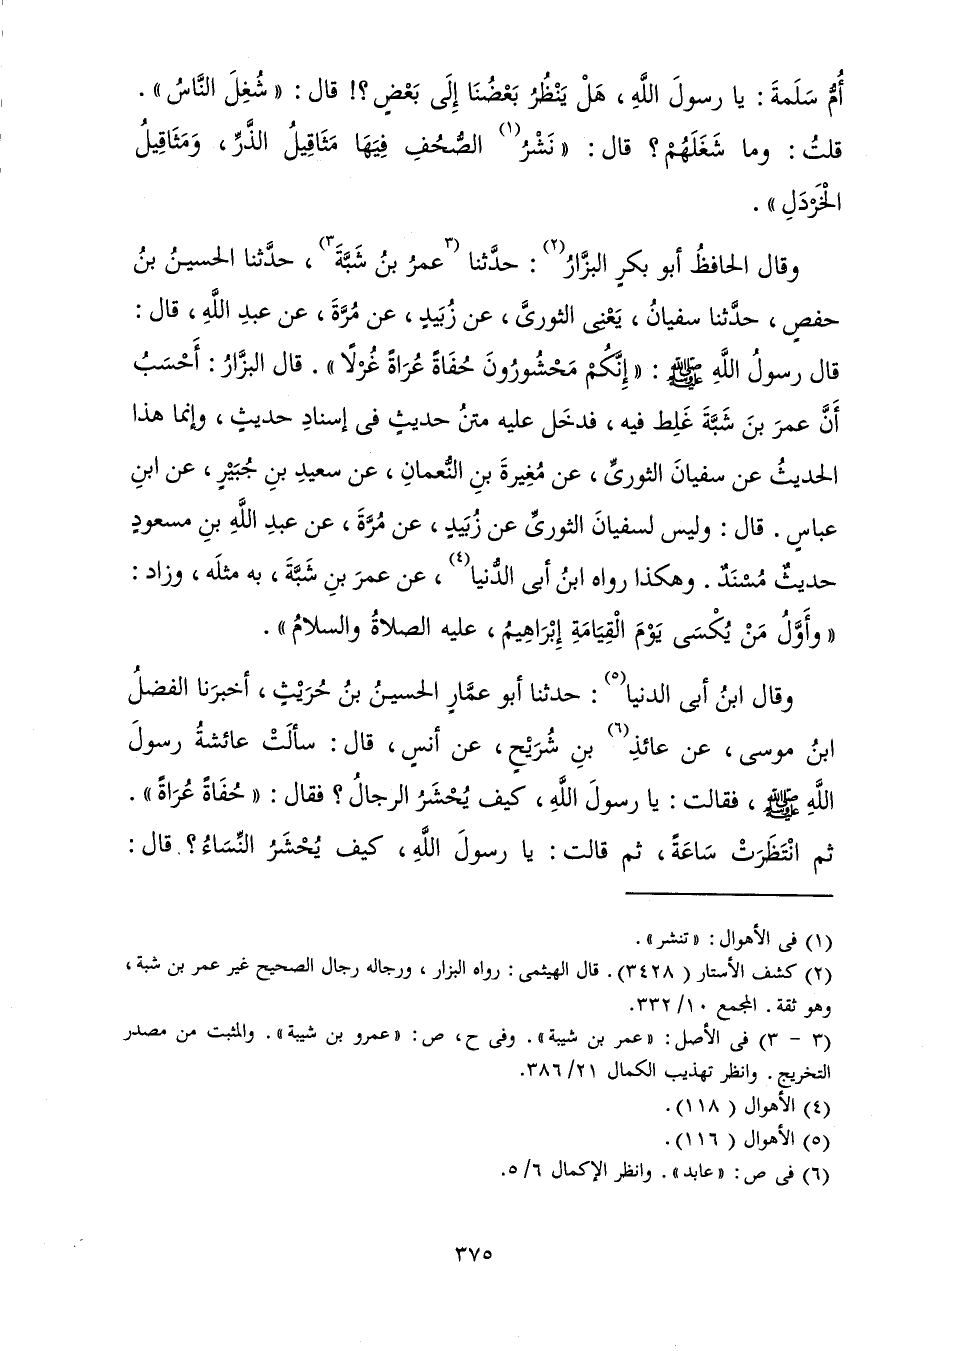 أُمُّ سَلَمةَ : يا رسولَ اللَّهِ ، هَلْ يَنْظُرُ بَعْضُنَا إِلَى بَعْضٍ ؟! قال : « شُغِلَ النَّاسُ » .
قلتُ : وما شَغَلَهُمْ ؟ قال : « نَشْرُ(١) الصُّحُفِ فِيَهَا مَثَاقِيلُ الذَّرِّ ، وَمَثَاقِيلُ
الْخَرْدَلِ » .
وقال الحافظُ أبو بكرٍ البزَّارُ(٢) : حدَّثنا (٣عمرُ بنُ شَبَّةَ٣) ، حدَّثنا الحسينُ بنُ
حفصٍ ، حدَّثنا سفيانُ ، يَعْنِى الثورىَّ ، عن زُبَيدٍ ، عن مُرَّةَ ، عن عبدِ اللَّهِ ، قال :
قال رسولُ اللَّهِ ﷺ : « إِنَّكُمْ مَحْشُورُونَ حُفَاةً عُرَاةً غُرْلًا » . قال البزَّارُ : أَحْسَبُ
أَنَّ عمرَ بنَ شَبَّةَ غَلِط فيه ، فدخَل عليه متنُ حديثٍ فى إسنادِ حديثٍ ، وإنما هذا
الحديثُ عن سفيانَ الثورىِّ ، عن مُغِيرةَ بنِ النُّعمانِ ، عن سعيدِ بنِ جُبَيْرٍ ، عن ابنِ
عباسٍ . قال : وليس لسفيانَ الثورىِّ عن زُبَيدٍ ، عن مُرَّةَ ، عن عبدِ اللَّهِ بنِ مسعودٍ
حديثٌ مُسْنَدٌ . وهكذا رواه ابنُ أبى الدُّنيا(٤) ، عن عمرَ بنِ شَبَّةَ ، به مثلَه ، وزاد :
« وأَوَّلُ مَنْ يُكْسَى يَوْمَ الْقِيَامَةِ إِبْرَاهِيمُ ، عليه الصلاةُ والسلامُ » .
وقال ابنُ أبى الدنيا(٥) : حدثنا أبو عمَّارٍ الحسينُ بنُ حُرَيْثٍ ، أخبرَنا الفضلُ
ابنُ موسى ، عن عائذِ(٦) بنِ شُرَيْحٍ ، عن أنسٍ ، قال : سألَتْ عائشةُ رسولَ
اللَّهِ ﷺ ، فقالت : يا رسولَ اللَّهِ ، كيف يُحْشَرُ الرجالُ ؟ فقال : « حُفَاةً عُرَاةً » .
ثم انْتَظَرَتْ سَاعَةً ، ثم قالت : يا رسولَ اللَّهِ ، كيف يُحْشَرُ النِّسَاءُ ؟ قال :
(١) فى الأهوال : « تنشر » .
(٢) كشف الأستار ( ٣٤٢٨) . قال الهيثمى : رواه البزار ، ورجاله رجال الصحيح غير عمر بن شبة ،
وهو ثقة . المجمع ١٠/ ٣٣٢.
(٣ - ٣) فى الأصل : « عمر بن شيبة » . وفى ح ، ص : « عمرو بن شيبة » . والمثبت من مصدر
التخريج . وانظر تهذيب الكمال ٢١/ ٣٨٦.
(٤) الأهوال ( ١١٨) .
(٥) الأهوال ( ١١٦) .
(٦) فى ص : « عابد » . وانظر الإكمال ٦/ ٥.
٣٧٥